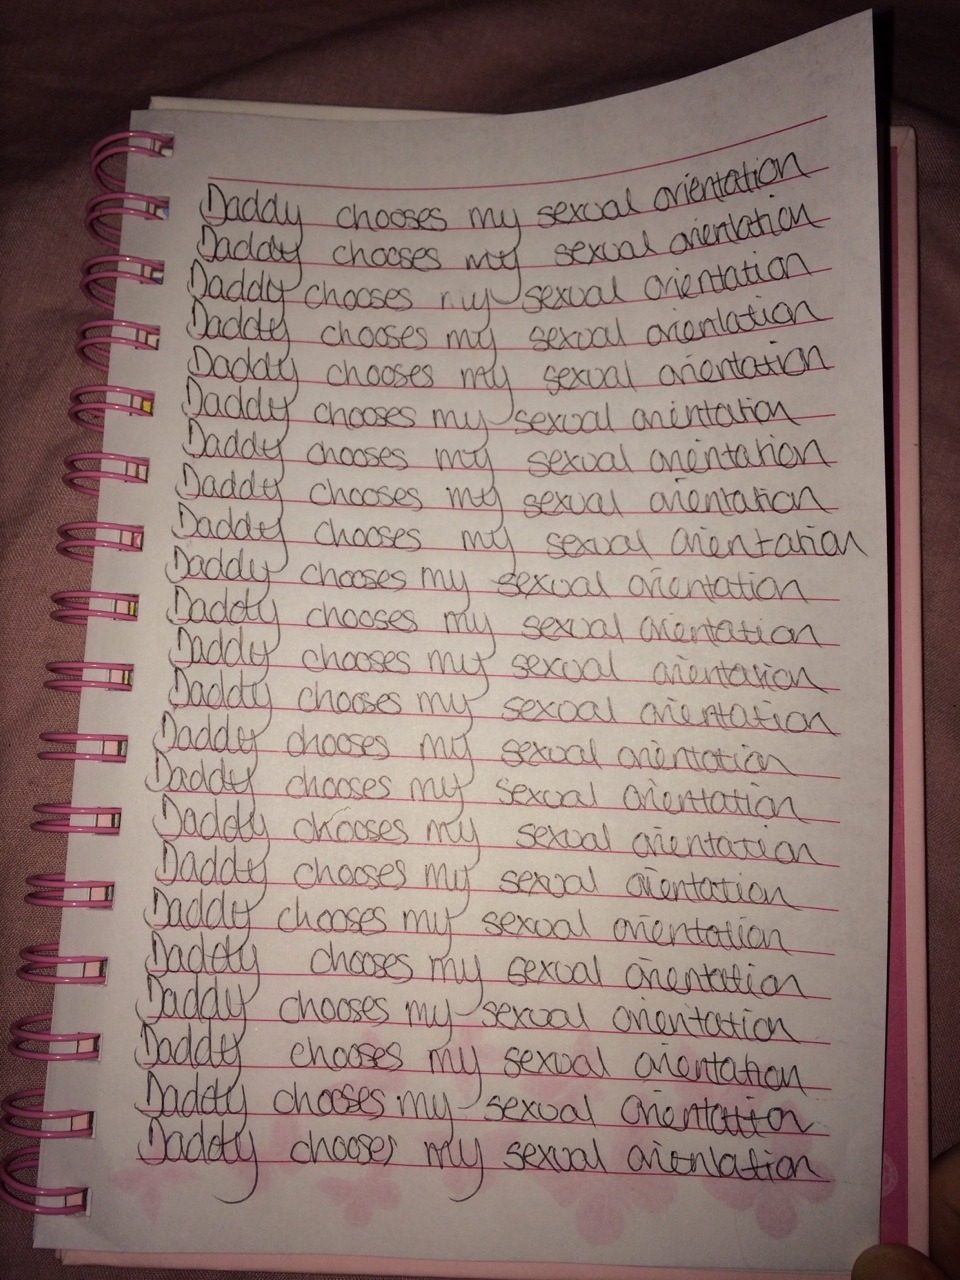 Daddy chooses my sexual orientation
Daddy chooses my sexual orientation
Daddy chooses my sexual orientation
Daddy chooses my sexual orientation
Daddy chooses my sexual orientation
Daddy chooses my sexual orientation
Daddy chooses my sexual orientation
Daddy chooses my sexual orientation
Daddy chooses my sexual orientation
Daddy chooses my sexual orientation
Daddy chooses my sexual orientation
Daddy chooses my sexual orientation
Daddy chooses my sexual orientation
Daddy chooses my sexual orientation
Daddy chooses my sexual orientation
Daddy chooses my sexual orientation
Daddy chooses my sexual orientation
Daddy chooses my sexual orientation
Daddy chooses my sexual orientation
Daddy chooses my sexual orientation
Daddy chooses my sexual orientation
Daddy chooses my sexual orientation
Daddy chooses my sexual orientation